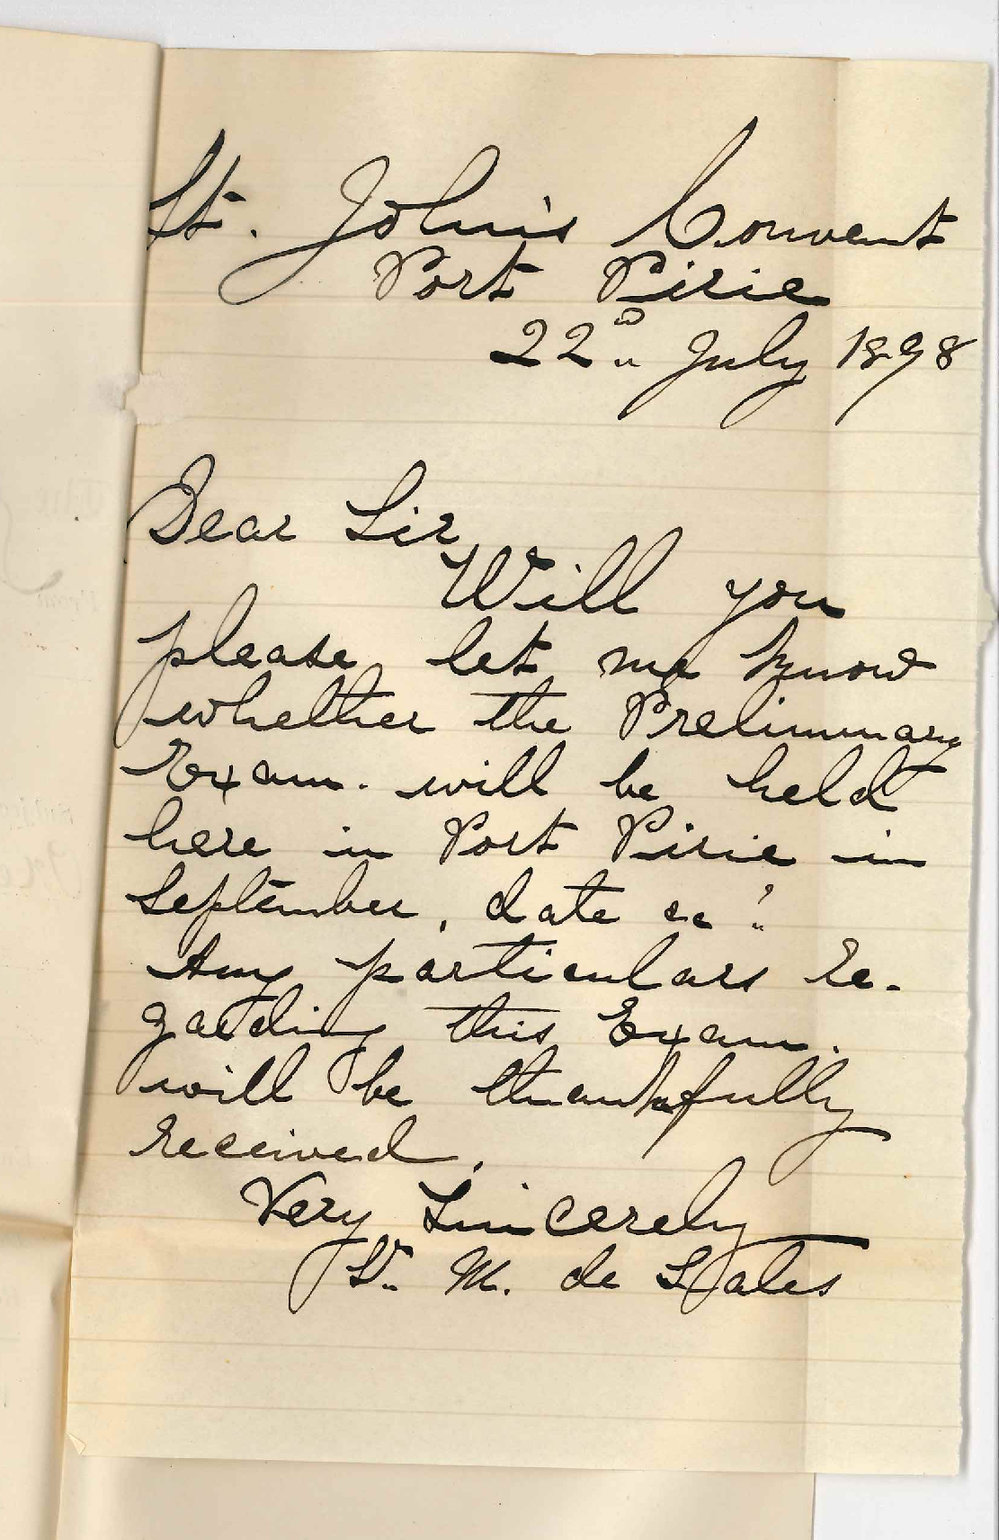 St. John's Convent
Port Pirie
22nd July 1898
Dear Sir
Will you
please let me know
whether the Preliminary
Exam. will be held
here in Port Pirie in
September, date &c?
Any particulars re-
garding this Exam.
will be thankfully
received.
Very Sincerely
Sr. M. de Sales